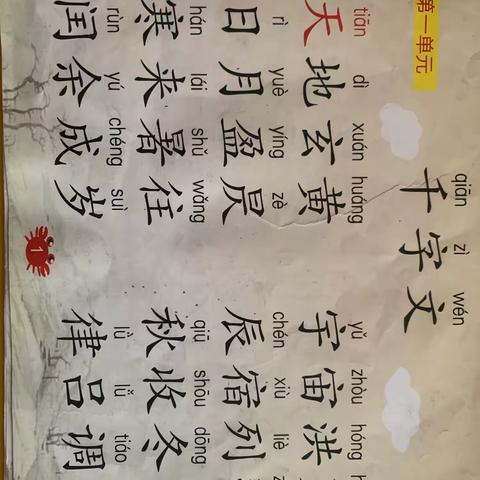 第一单元
qiān zì wén
千字文
tiān dì xuán huáng yǔ zhòu hóng
天地玄黄 宇宙洪
rì yuè yíng zè chén xiù liè
日月盈昃 辰宿列
hán lái shǔ wǎng qiū shōu dōng
寒来暑往 秋收冬
rùn yú chéng suì lǜ lǚ tiáo
闰余成岁 律吕调
1